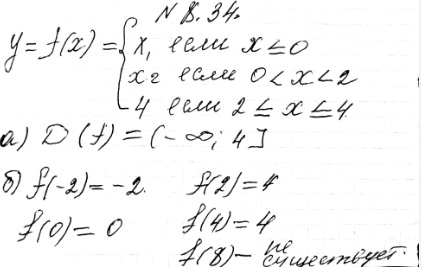 N 8.34.
y = f(x) = { x, если x ≤ 0
x2 если 0 < x < 2
4 если 2 ≤ x ≤ 4
а) D (f) = (-∞; 4]
б) f(-2) = -2. f(2) = 4
f(0) = 0 f(4) = 4
f(8) – не существует.